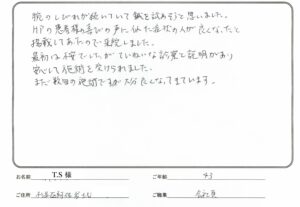 腕のしびれが続いていて鍼を試めそうと思いました。
HPの患者様の喜びの声に似た症状の人が良くなったと
掲載してあったので来院しました。
最初は不安でしたがていねいな説明があり
安心して施術を受けられました。
まだ数回の施術ですが大分良くなってきています。
お名前 T.S 様 ご年齢 43
ご住所 ご職業 会社員